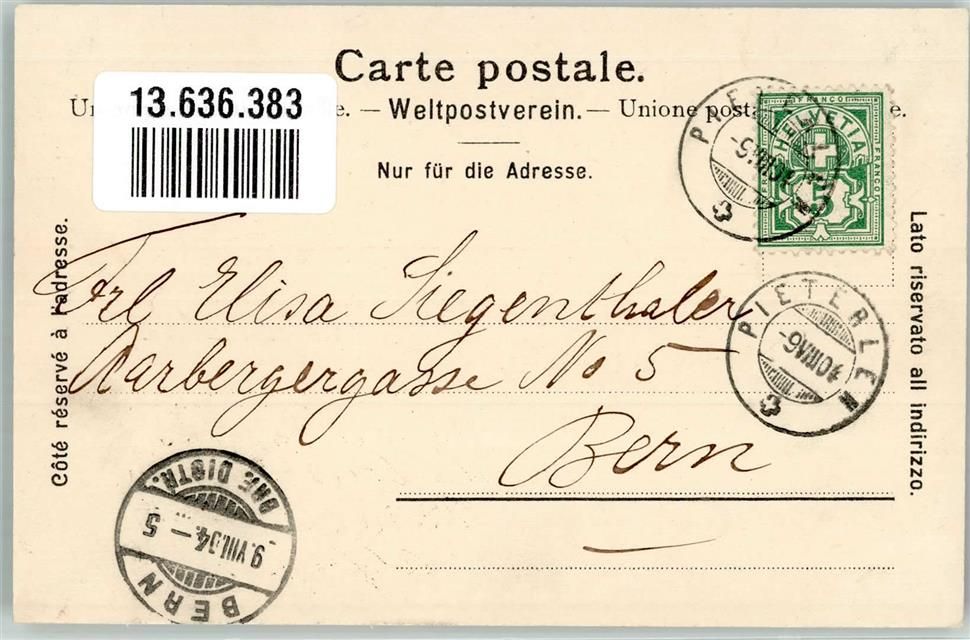 Carte postale.
13.636.383
Un e. — Weltpostverein. — Unione posta e.
Nur für die Adresse.
FRANCO
HELVETIA
FRANCO
5
PIETERLEN
Côté réservé à l'adresse.
Lato riservato all indirizzo.
Frl Elisa Siegenthaler
Aarbergergasse No 5
Bern
PIETERLEN
BERN
9.VIII.04.—5
BRF. DISTR.